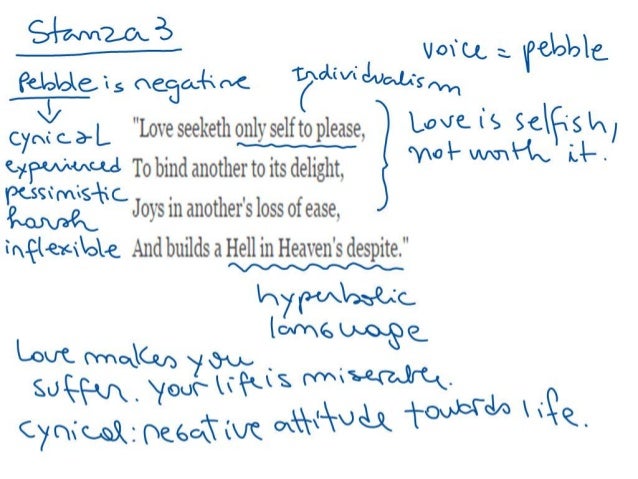 Stanza 3
voice = pebble
Pebble is negative
Individualism
cynical
experienced
pessimistic
harsh
inflexible
"Love seeketh only self to please,
To bind another to its delight,
Joys in another's loss of ease,
And builds a Hell in Heaven's despite."
Love is selfish,
not worth it.
hyperbolic
language
Love makes you
suffer. Your life is miserable.
cynical: negative attitude towards life.